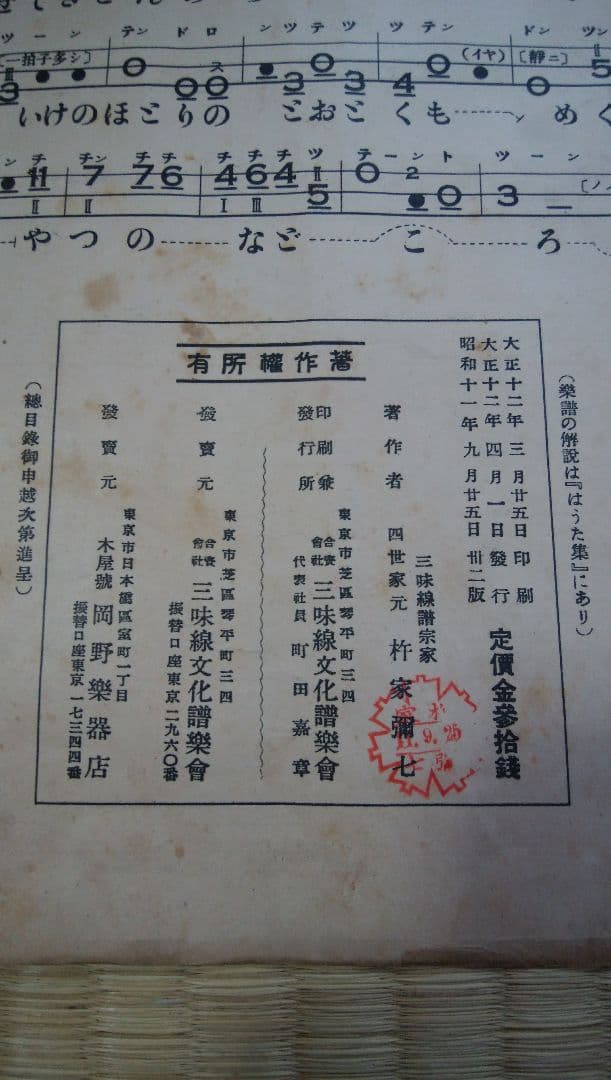 ツーン テン ド ロ ンツテツ ツテン ドン ツン
〔一拍子多シ〕 ス (イヤ) 〔靜ニ〕
3 0 0 0 3 0 3 4 0 0 5
いけのほとりの とおとくも めく
ンチ チン チチ チチツ テーント ツーン
11 7 7 6 4 6 4 5 0 2 0 3
II II I III
やつの などころ
(樂譜の解説は『はうた集』にあり)
大正十二年三月廿五日印刷
大正十二年四月一日發行
昭和十一年九月廿五日卅二版
定價金參拾錢
著作權所有
三味線譜宗家
著作者 四世家元 杵家彌七
印刷兼發行所
東京市芝區琴平町三四
合資會社 三味線文化譜樂會
代表社員 町田嘉章
發賣元
東京市芝區琴平町三四
合資會社 三味線文化譜樂會
振替口座東京二九六〇番
發賣元
東京市日本橋區室町一丁目
木屋號 岡野樂器店
振替口座東京一七三四四番
(總目錄御申越次第進呈)